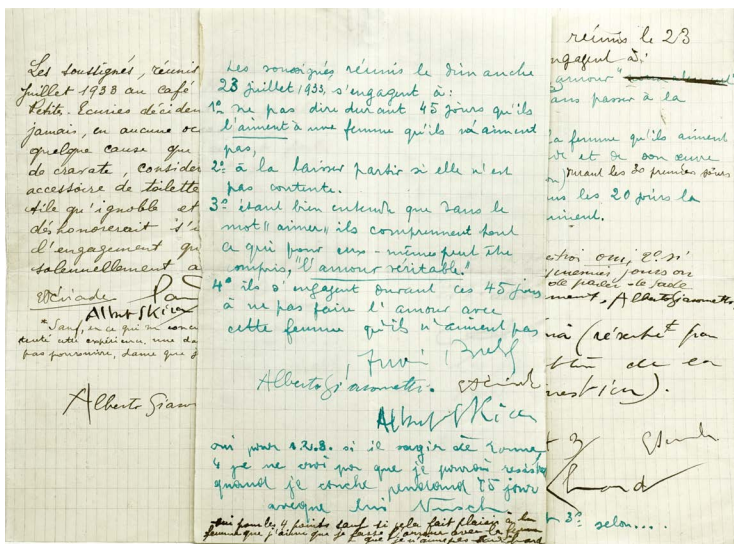 Les soussignés, réunis
juillet 1933 au café
Petites Ecuries déciden
jamais, en aucune oc
quelque cause que
de cravate, consider
accessoire de toilette
utile qu'ignoble et
déshonorerait s'i
d'engagement qu
solennellement a
Albert Skira
* Sauf, en ce qui me conce
tenté cette expérience, une da
pas poursuivre, dame que j
Alberto Giaco
Les soussignés réunis le dimanche
23 juillet 1933, s'engagent à:
1º ne pas dire durant 45 jours qu'ils
l'aiment à une femme qu'ils n'aiment
pas,
2º à la laisser partir si elle n'est
pas contente.
3º étant bien entendu que dans le
mot "aimer" ils comprennent tout
ce qui pour eux-mêmes peut être
compris, "l'amour véritable"
4º ils s'engagent durant ces 45 jours
à ne pas faire l'amour avec
cette femme qu'ils n'aiment pas
Alberto Giacometti.
Albert Skira
oui pour 1.2.3. si il sagir de
4 je ne croi pas que je pourrai resisté
quand je couche pendand 75 jour
avecque lui Nusch.
oui pour les 4 points sauf si cela fait plaisir à la
femme que j'aime que je fasse l'amour avec la femme
que je n'aime pas
réunis le 23
ngagent à:
amour"
ans passer à la
la femme qu'ils aiment
et de son œuvre
durant les 20 premiers jours
les 20 jours la
aiment.
oui, 2º si
parler de Sade
ment, Alberto Giacometti
(réservet par
de la
uestion).
3º selon....